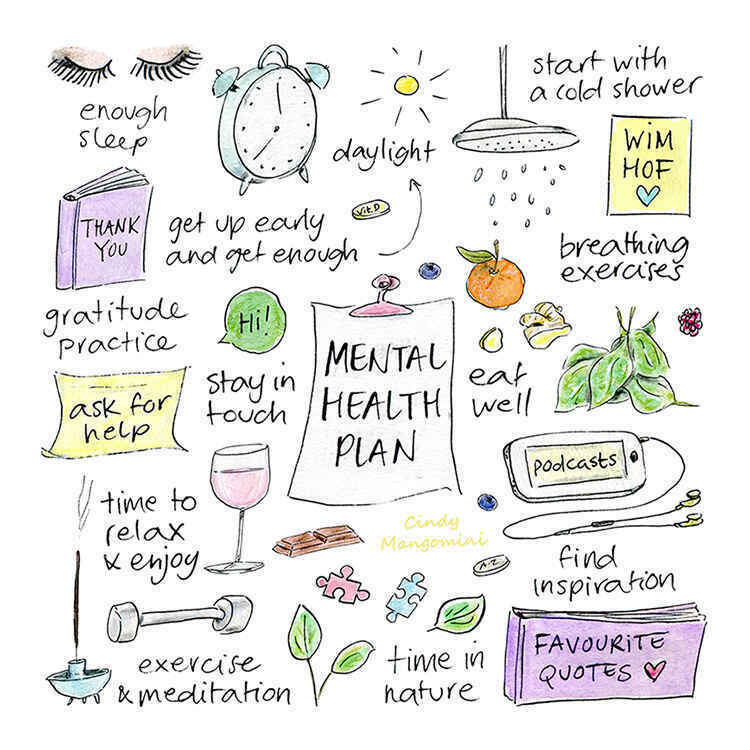 enough
sleep
daylight
start with
a cold shower
WIM
HOF
THANK
YOU
get up early
and get enough
Vit.D
breathing
exercises
gratitude
practice
Hi!
stay in
touch
MENTAL
HEALTH
PLAN
eat
well
ask for
help
podcasts
time to
relax
& enjoy
Cindy
Mangomini
A-Z
find
inspiration
exercise
& meditation
time in
nature
FAVOURITE
QUOTES